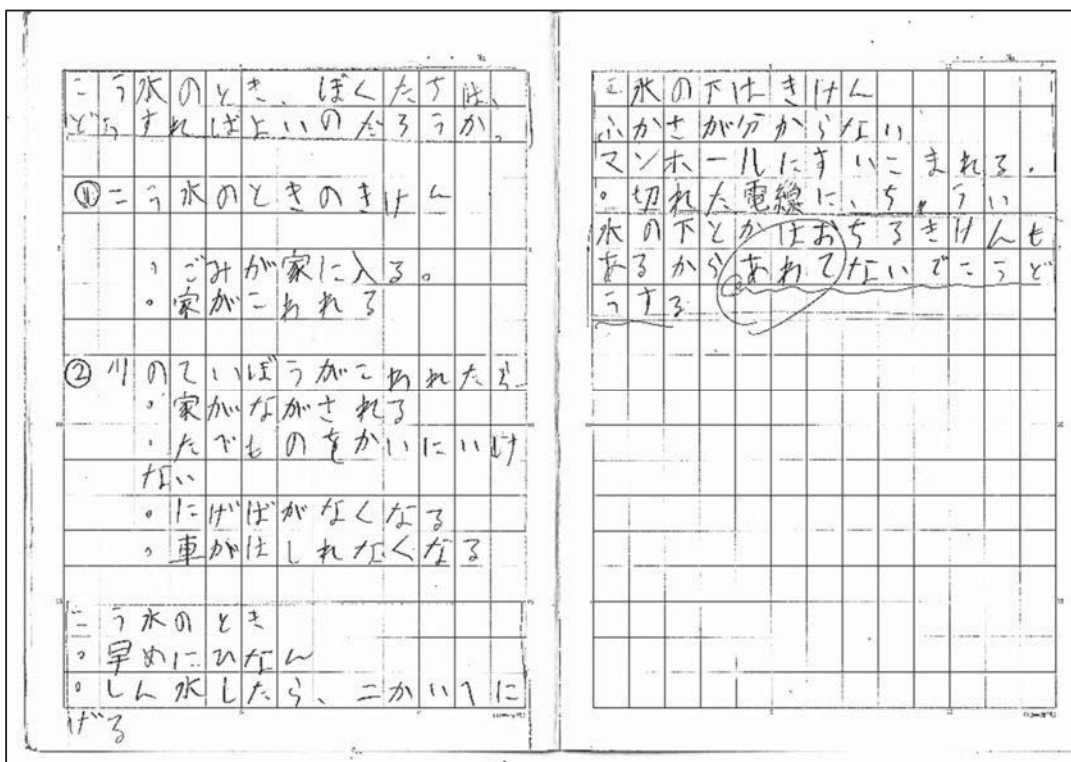 こう水のとき、ぼくたちは、
どうすればよいのだろうか。
①こう水のときのきけん
・ごみが家に入る。
・家がこわれる
②川のていぼうがこわれたら
・家がながされる
・たでものをかいにいけ
ない
・にげばがなくなる
・車がはしれなくなる
こう水のとき
・早めにひなん
・しん水したら、二かいへに
げる
水の下はきけん
ふかさが分からない
マンホールにすいこまれる.
・切れた電線に、ちゅうい
水の下とかはおちるきけんも
あるからあわてないでこうど
うする